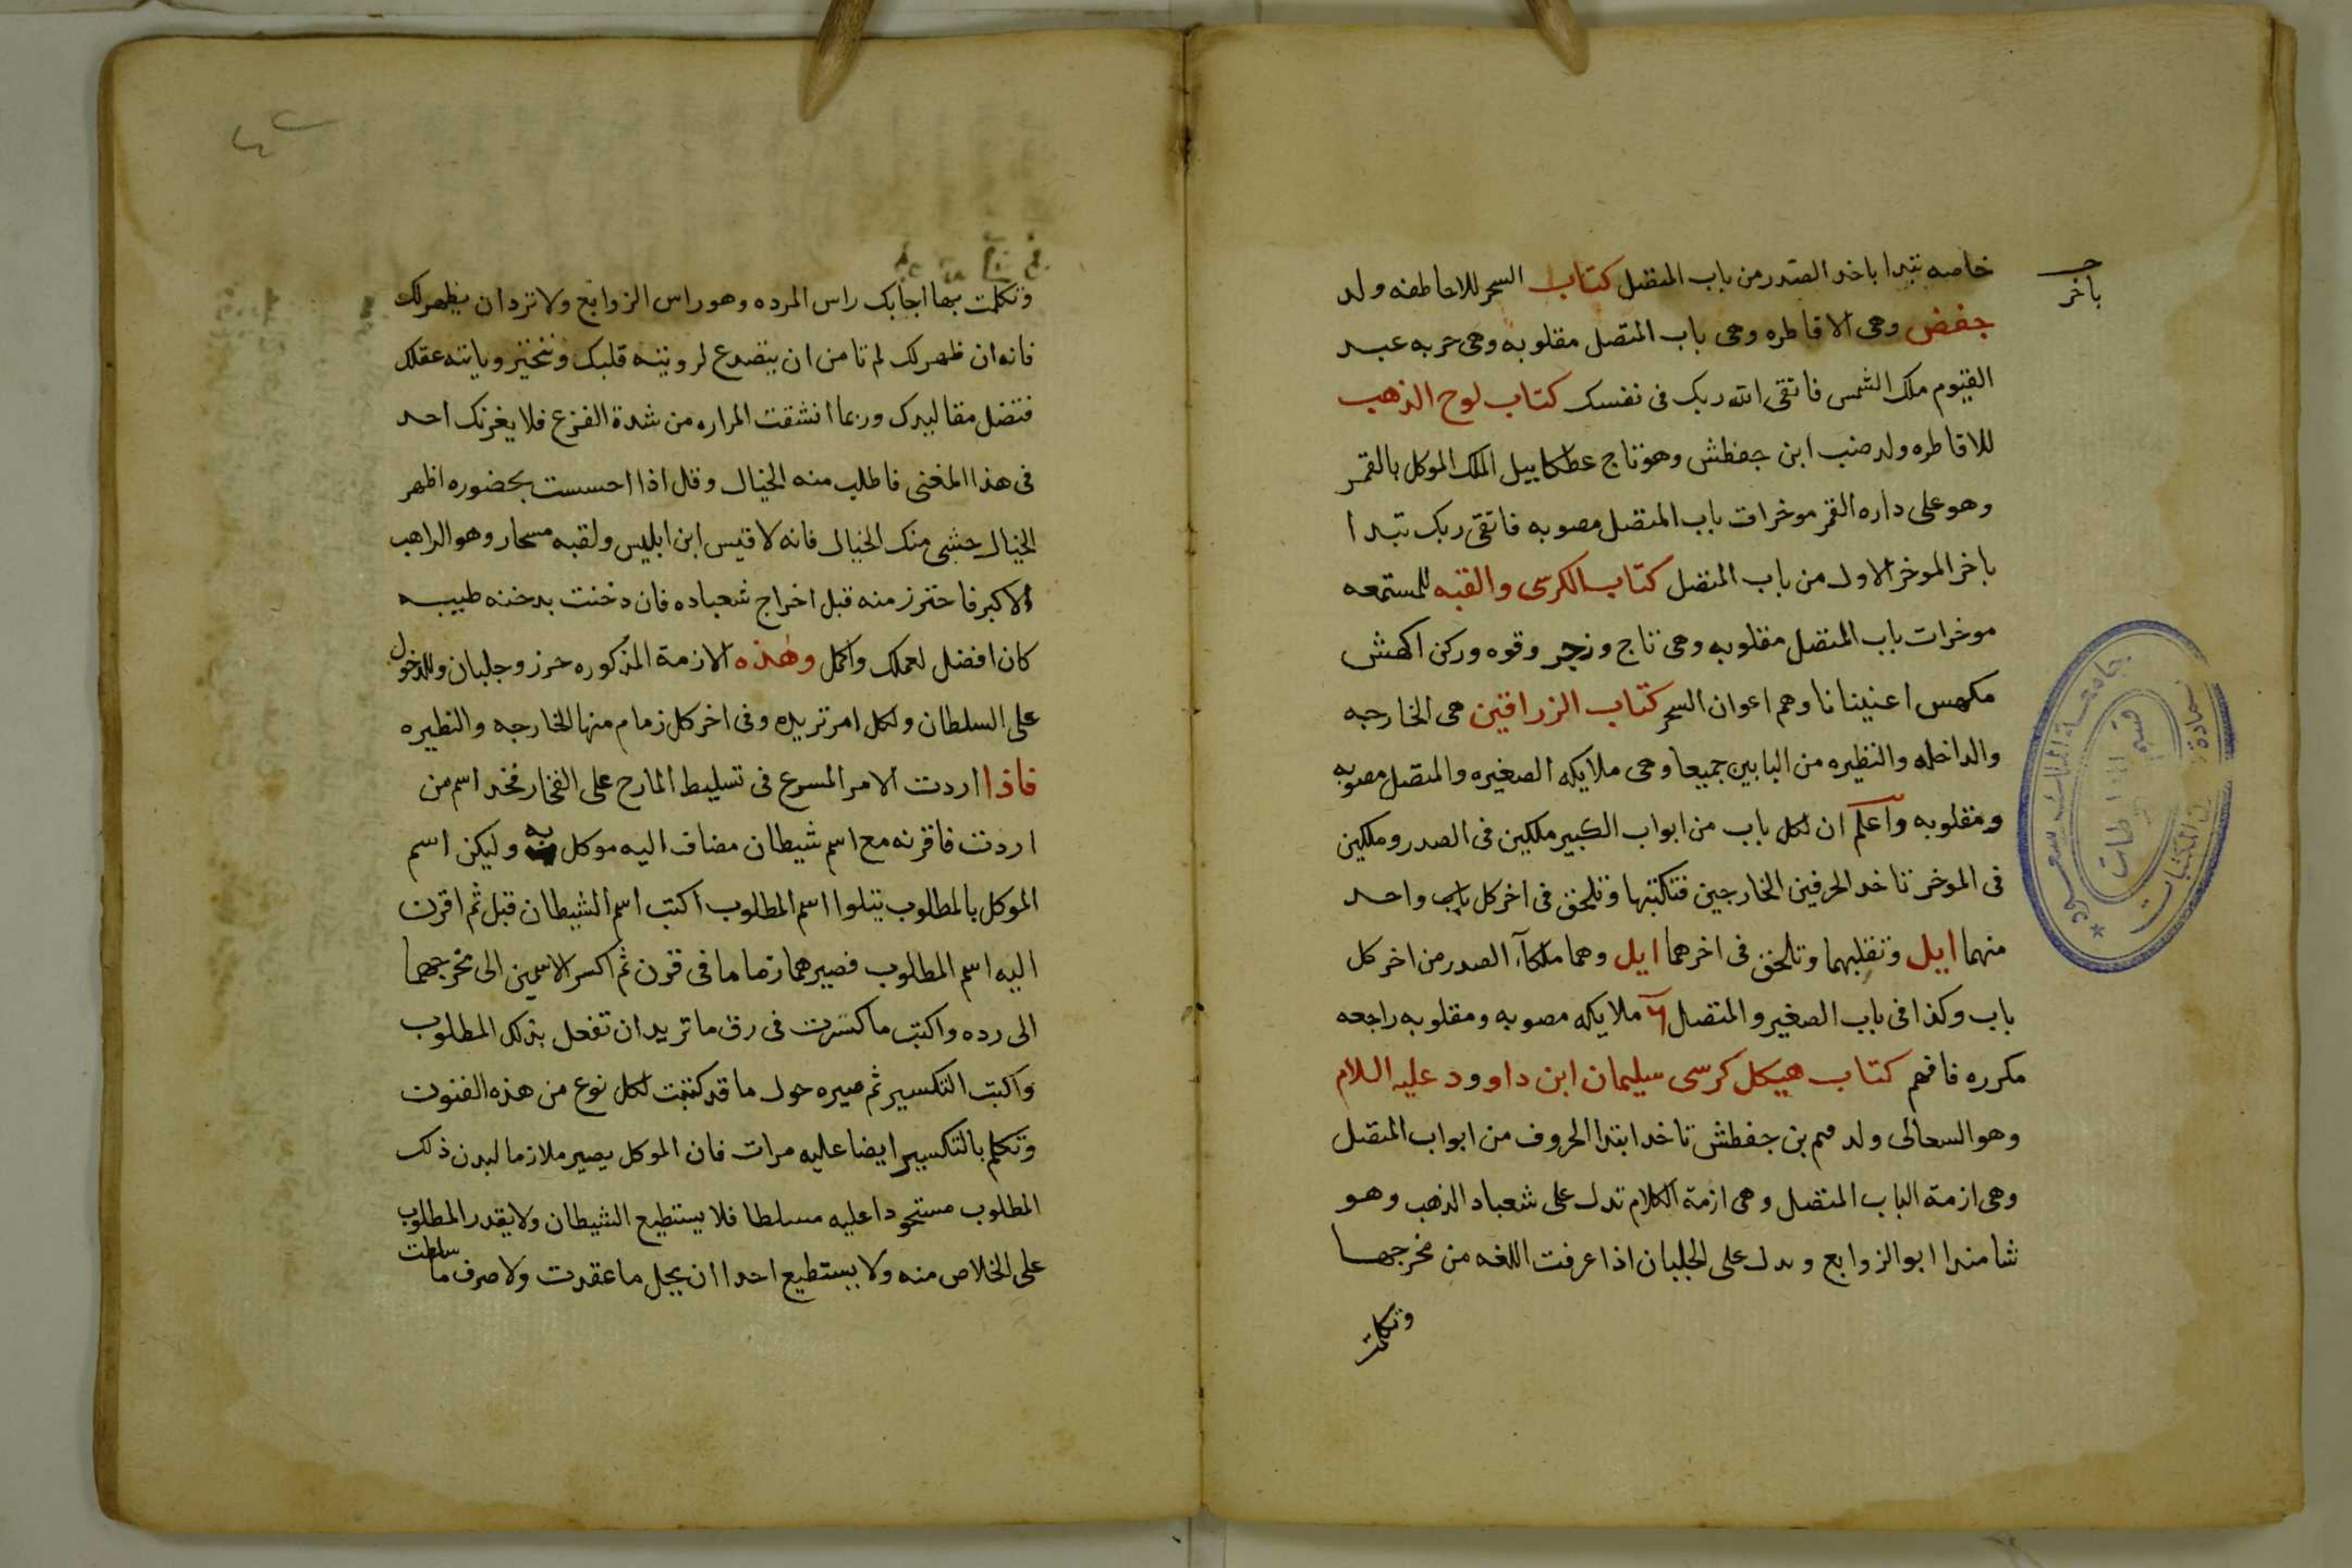 خاصه تبدا باخد الصدر من باب المتصل كتاب السحر للاحاطفه ولد
جفض وهى الاقاطره وهى باب المتصل مقلوبه وهى حربه عبد
القيوم ملك الشمس فاتقى الله ربك فى نفسك كتاب لوح الذهب
للاقاطره ولد صنب ابن جفطش وهو تاج عطكابيل الملك الموكل بالقمر
وهو على داره القمر موخرات باب المتصل مصوبه فاتقى ربك تبدا
باخر الموخر الاول من باب المتصل كتاب الكرسى والقبه للمستمعه
موخرات باب المتصل مقلوبه وهى تاج وزجر وقوه وركن اكهش
مكهس اعنينانا وهم اعوان السحر كتاب الزرافتين هى الخارجه
والداخله والنظيره من البابين جميعا وهى ملايكه الصغيره والمتصل مصوبه
ومقلوبه واعلم ان لكل باب من ابواب الكبير ملكين فى الصدر وملكين
فى الموخر تاخد الحرفين الخارجين فتاكتبها وتلحق فى اخر كل باب واحد
منهما ايل وتقلبهما وتلحق فى اخرهما ايل وهما ملكآ، الصدر من اخر كل
باب وكذا فى باب الصغير والمتصل ملايكه مصوبه ومقلوبه راجعه
مكرره فافهم كتاب هيكل كرسى سليمان ابن داوود عليه اللام
وهو السحالى ولد ميم بن جفطش تاخد ابتدا الحروف من ابواب المتصل
وهى ازمة الباب المتصل وهى ازمة الكلام تدل على شعباد الذهب وهو
شامندا ابو الزوابع وىدل على الجلبان اذا عرفت اللغه من مخرجها
وتكلمت
باخر
وتكلمت بها اجابك راس المرده وهو راس الزوابع ولا تردان يظهر لك
فانه ان ظهر لك لم تامن ان يتصدع لرويته قلبك وتختير وياتته عقلك
فتضل مقاليدك وربما انشقت المراره من شدة الفزع فلا يغرنك احد
فى هذا المغنى فاطلب منه الخيال وقل اذا احسست بحضوره اظهر
الخيال حشبى منك الخيال فانه لاقيس ابن ابليس ولقبه مسحار وهو الراهب
الاكبر فاحترز منه قبل اخراج شعباده فان دخنت بدخنه طيبه
كان افضل لعملك واكمل وهذه الازمة المذكوره حرز وجلبان وللدخول
على السلطان ولكل امر تريده وفى اخر كل زمام منها الخارجه والنظيره
فاذا اردت الامر المسرع فى تسليط المارح على الفخار فخد اسم من
اردت فاقرنه مع اسم شيطان مضاف اليه موكل به وليكن اسم
الموكل بالمطلوب يتلوا اسم المطلوب اكتب اسم الشيطان قبل ثم اقرن
اليه اسم المطلوب فصيرهما زماما فى قرن ثم اكسر الاسمين الى مخرجهما
الى رده واكتب ما كسرت فى رق ما تريد ان تفعل بذلك المطلوب
واكبت التكسير ثم صيره حول ما قد كتبت لكل نوع من هذه الفنون
وتكلم بالتكسير ايضا عليه مرات فان الموكل يصير ملازما لبدن ذلك
المطلوب مستحودا عليه مسلطا فلا يستطيع الشيطان ولا يقدر المطلوب
على الخلاص منه ولا يستطيع احدا ان يحل ما عقدت ولا صرف ما سلطت
جامعة الملك سعود
قسم المخطوطات
عمادة شؤون المكتبات